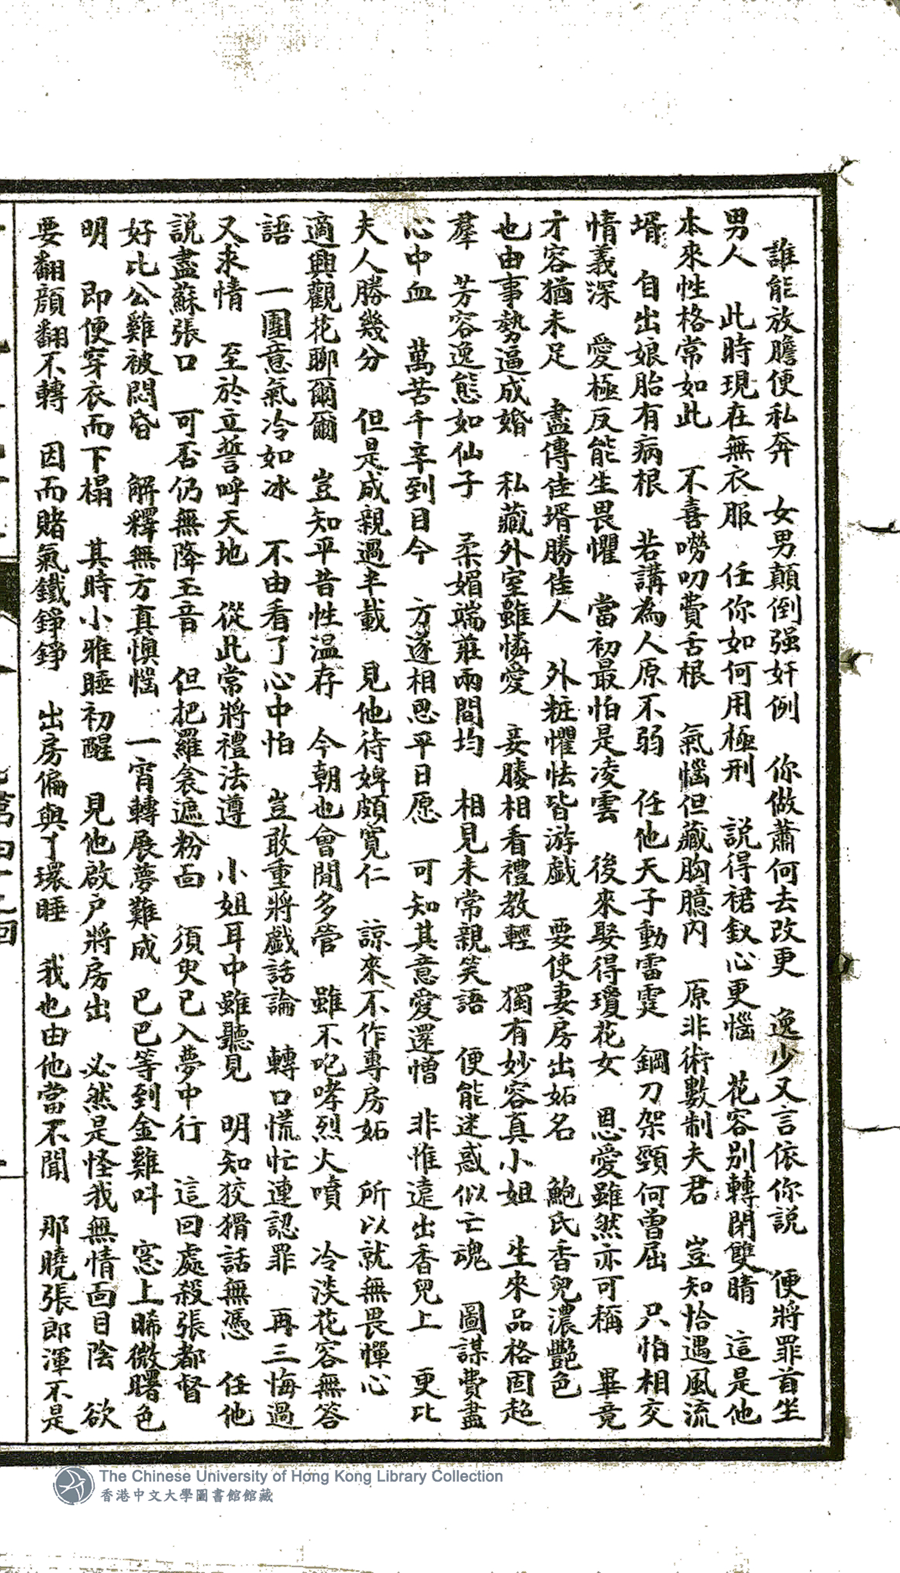 誰能放膽便私奔　女男顛倒强奸例　你做蕭何去改更　逸少又言依你説　便將罪首坐
男人　此時現在無衣服　任你如何用極刑　説得裙釵心更惱　花容别轉閉雙睛　這是他
本來性格常如此　不喜嘮叨費舌根　氣惱但藏胸臆内　原非術數制夫君　豈知恰遇風流
壻　自出娘胎有病根　若講為人原不弱　任他天子動雷霆　鋼刀架頸何曾屈　只怕相交
情義深　愛極反能生畏懼　當初最怕是凌雲　後來娶得瓊花女　恩愛雖然亦可稱　畢竟
才容猶未足　盡傳佳壻勝佳人　外粧懼怯皆游戲　要使妻房出妬名　鮑氏香兒濃艷色
也由事勢逼成婚　私藏外室雖憐愛　妾媵相看禮教輕　獨有妙容真小姐　生來品格固超
羣　芳容逸態如仙子　柔媚端莊兩間均　相見未常親笑語　便能迷惑似亡魂　圖謀費盡
心中血　萬苦千辛到日今　方遂相思平日愿　可知其意愛還憎　非惟遠出香兒上　更比
夫人勝幾分　但是成親過半載　見他待婢頗寬仁　諒來不作專房妬　所以就無畏憚心
適興觀花聊爾爾　豈知平昔性温存　今朝也會閒多管　雖不咆哮烈火噴　冷淡花容無答
語　一團意氣冷如冰　不由看了心中怕　豈敢重將戲話論　轉口慌忙連認罪　再三悔過
又求情　至於立誓呼天地　從此常將禮法遵　小姐耳中雖聽見　明知狡猾話無憑　任他
説盡蘇張口　可否仍無降玉音　但把羅衾遮粉面　須臾已入夢中行　這回處殺張都督
好比公雞被悶昏　解釋無方真懊惱　一宵轉展夢難成　巴巴等到金雞呌　窓上晞微曙色
明　即便穿衣而下榻　其時小雅睡初醒　見他啟户將房出　必然是怪我無情面目陰　欲
要翻顔翻不轉　因而賭氣鐵錚錚　出房偏與丫環睡　我也由他當不聞　那曉張郎渾不是
The Chinese University of Hong Kong Library Collection
香港中文大學圖書館館藏